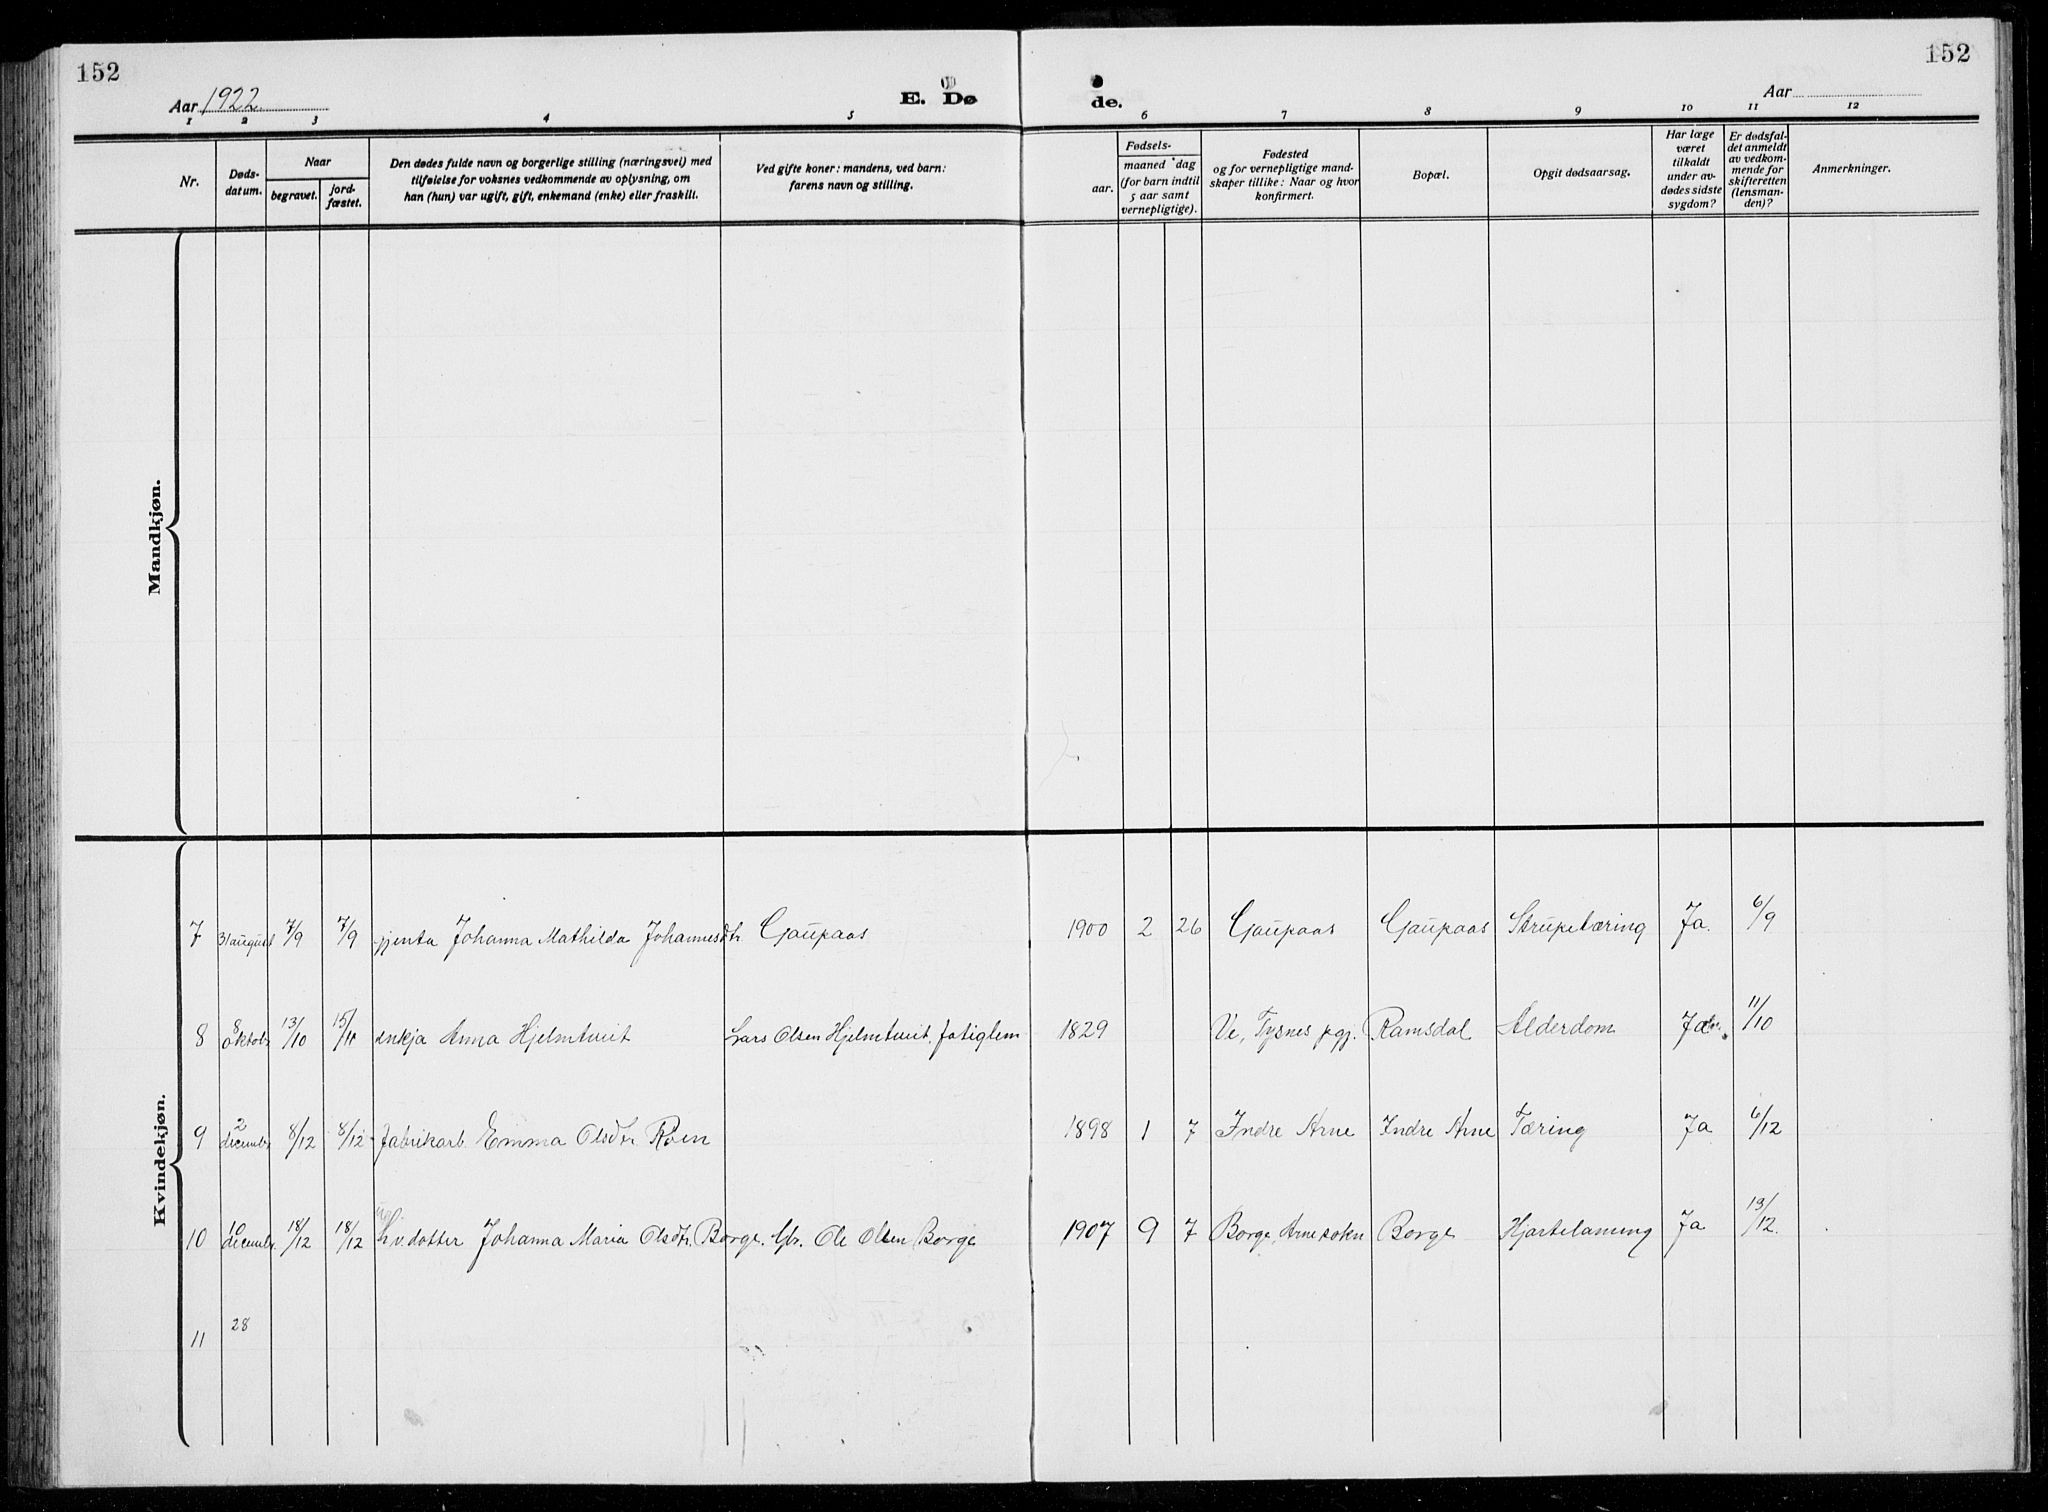 152
152
Aar 1922
E. Dø
de.
Aar
1 2 3 4 5 6 7 8 9 10 11 12
Nr.
Døds-
datum.
Naar
begravet.
jord-
fæstet.
Den dødes fulde navn og borgerlige stilling (næringsvei) med
tilføielse for voksnes vedkommende av oplysning, om
han (hun) var ugift, gift, enkemand (enke) eller fraskilt.
Ved gifte koner: mandens, ved barn:
farens navn og stilling.
Fødsels-
aar.
maaned dag
(for barn indtil
5 aar samt
vernepligtige).
Fødested
og for vernepligtige mand-
skaper tillike: Naar og hvor
konfirmert.
Bopæl.
Opgit dødsaarsag.
Har læge
været
tilkaldt
under av-
dødes sidste
sygdom?
Er dødsfal-
det anmeldt
av vedkom-
mende for
skifteretten
(lensman-
den)?
Anmerkninger.
Mandkjøn.
Kvindekjøn.
7 31 august 7/9 7/9 gjenta Johanna Mathilda Johannesdtr. Gaupaas 1900 2 26 Gaupaas Gaupaas Strupetæring Ja. 6/9
8 8 oktob. 13/10 15/10 enkja Anna Hjelmtveit Lars Olsen Hjelmtveit, fatiglem 1829 Ve, Tysnes pgj. Ramsdal Alderdom 11/10
9 2 decembr. 8/12 8/12 fabrikarb. Emma Olsdtr. Roen 1898 1 7 Indre Arne Indre Arne Tæring Ja 6/12
10 10 decembr. 18/12 18/12 dotter Johanna Maria Olsdtr. Borge. Gbr. Ole Olsen Borge 1907 9 7 Borge, Arne sokn Borge Hjartelaming Ja 13/12.
11 28